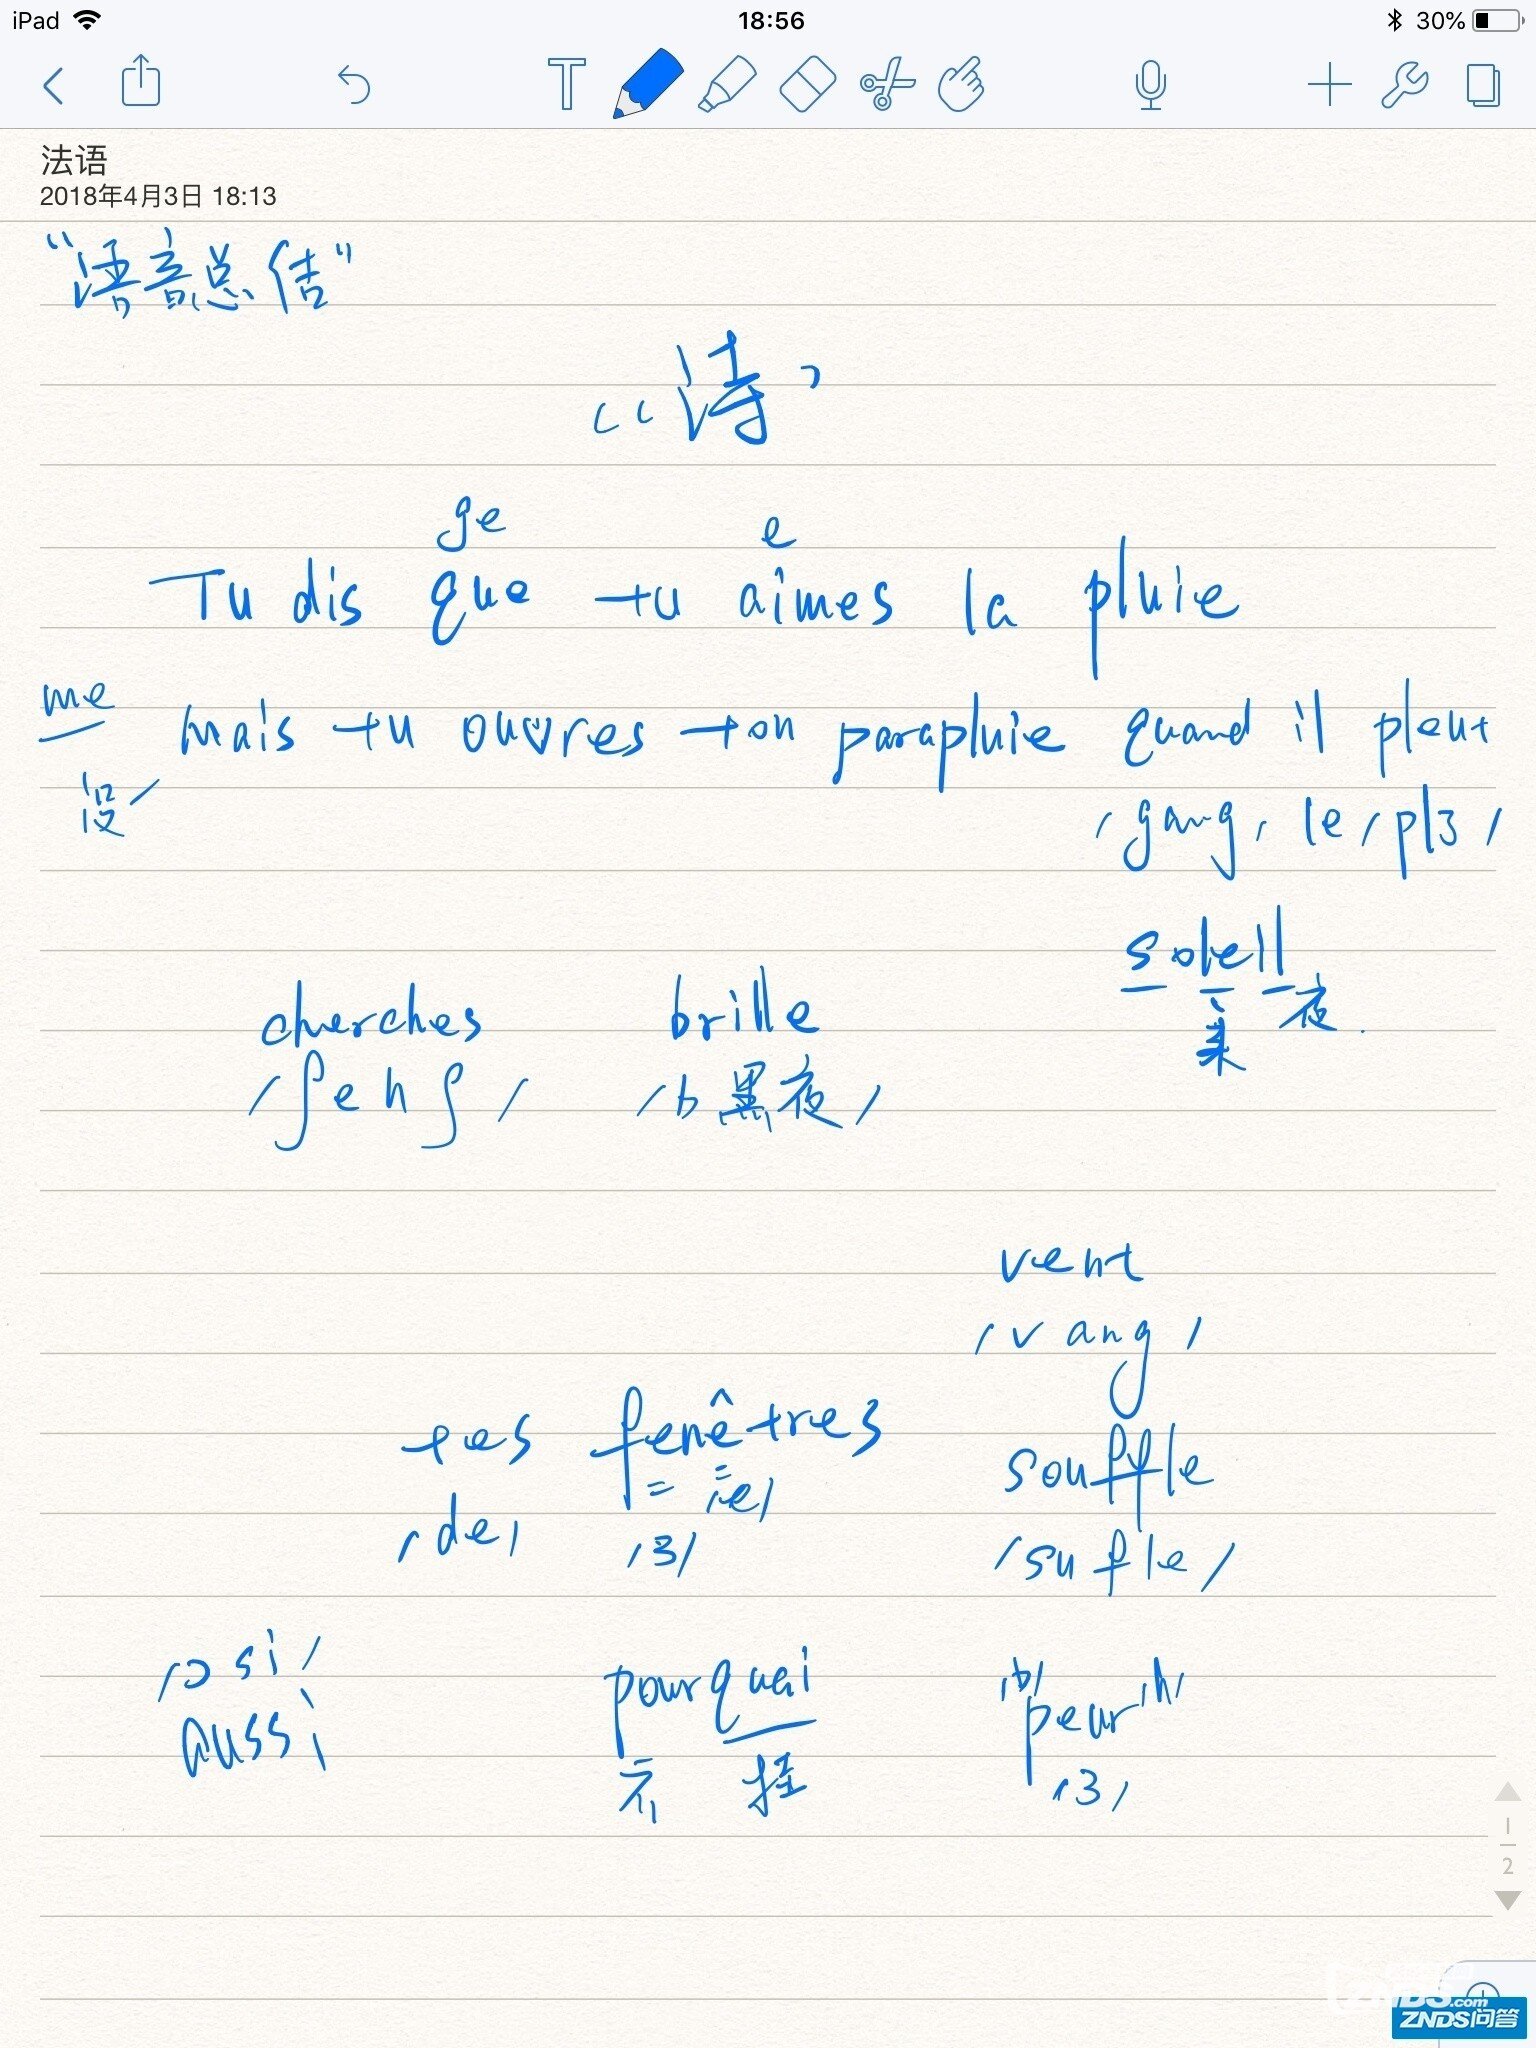 iPad 18:56 30%
法语
2018年4月3日 18:13
“语音总结”
“诗”
ge e
Tu dis que tu aimes la pluie
me mais tu ouvres ton parapluie quand il pleut
没 /gang/ le /pl3/
soleil
来 夜
cherches brille
/ʃehʃ/ /b黑夜/
vent
/vang/
tes fenêtres souffle
/de/ /3/ /e/ /sufle/
/osi/ pourquai /b/ peur /h/
aussi 挂 /3/
1
2
ZNDS.com
ZNDS问答